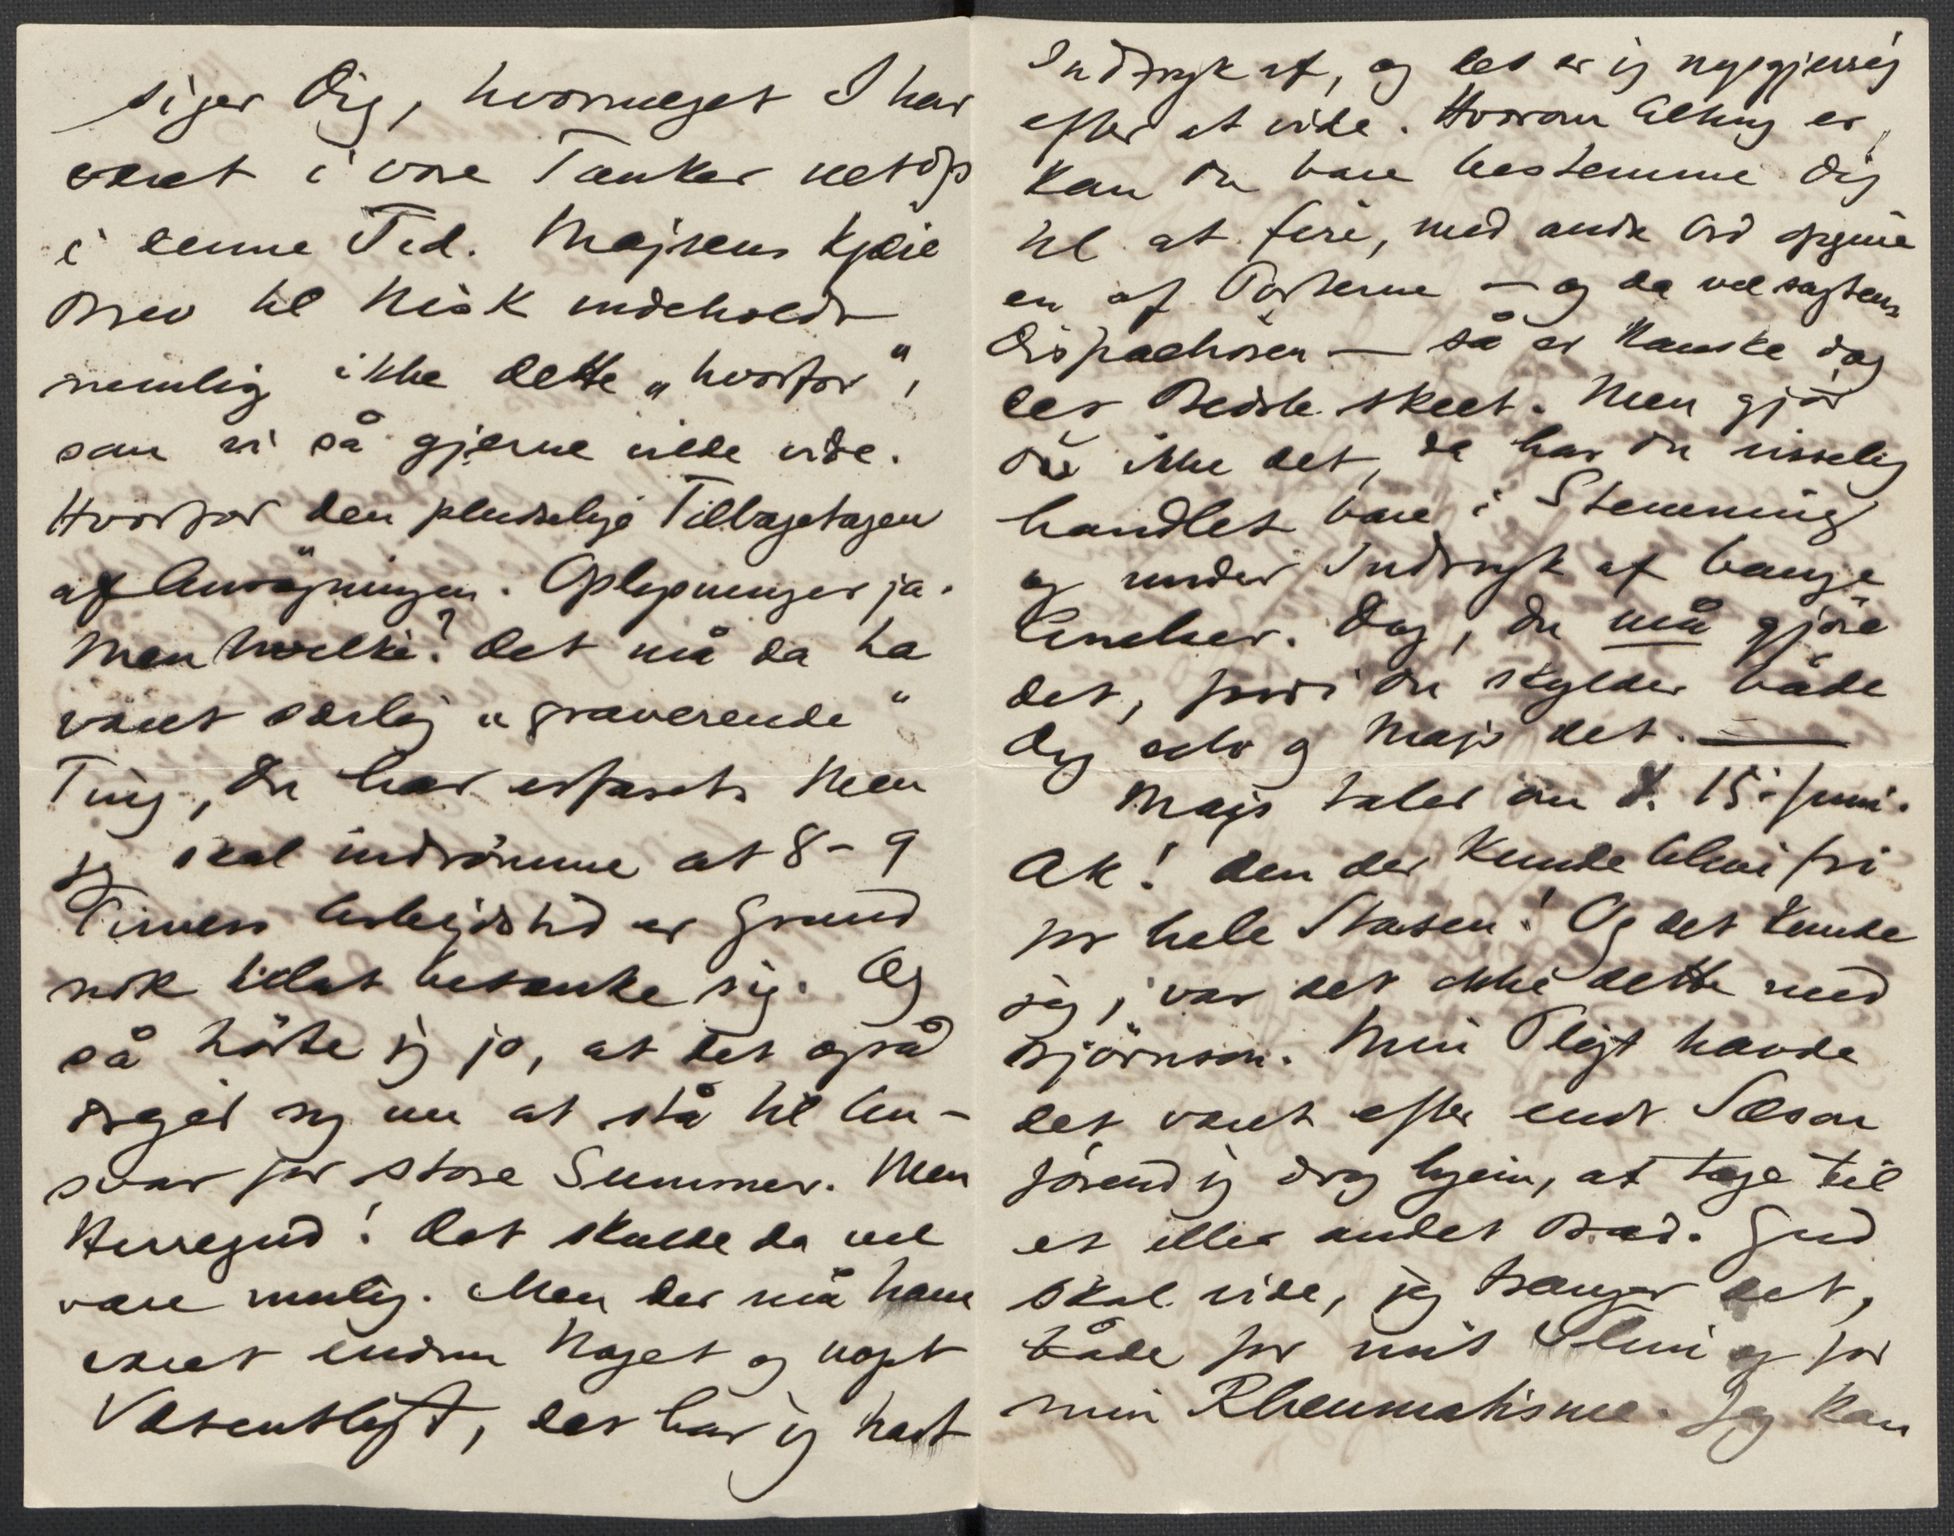 siger Dig, hvormeget I har
været i vore Tanker netop
i denne Tid. Majsens kjære
Brev til Nisk indeholdt
nemlig ikke dette „hvorfor",
som vi så gjerne vilde vide.
Hvorfor den pludselige Tilbagetagen
af Ansøgningen. Oplysninger ja.
Men hvilke? Det må da ha
været særlig „graverende"
Ting, Du har erfaret. Men
jeg skal indrömme at 8–9
Timers Arbejdstid er Grund
nok til at betænke sig. Og
så hörte jeg jo, at det også
drejed sig om at stå til An-
svar for store Summer. Men
Herregud! Det skulde da vel
være mulig. Men der må have
været endnu Noget og noget
Væsentligt, det har jeg havt
Indtryk af, og det er jeg nysgjerrig
efter at vide. Hvorom Alting er,
kan Du bare bestemme Dig
til at fire, med andre Ord opgive
en af Posterne — og da vel sagtens
Dispachören — så er kanske dog
det Bedste skeet. Men gjör
Du ikke det, da har Du visselig
handlet bare i Stemning
og under Indtryk af bange
Anelser. Dog, Du må gjöre
det, fordi Du skylder både
Dig selv og Majs det. —
Majs taler om d. 15. Juni.
Ak! den der kunde blive fri
for hele Stasen! Og det kunde
jeg, var det ikke dette med
Björnson. Min Pligt havde
det været efter endt Sæson
förend jeg drog hjem, at tage til
et eller andet Bad. Gud
skal vide, jeg trænger det,
både for mit Slim og for
min Rheumatisme. Jeg kan